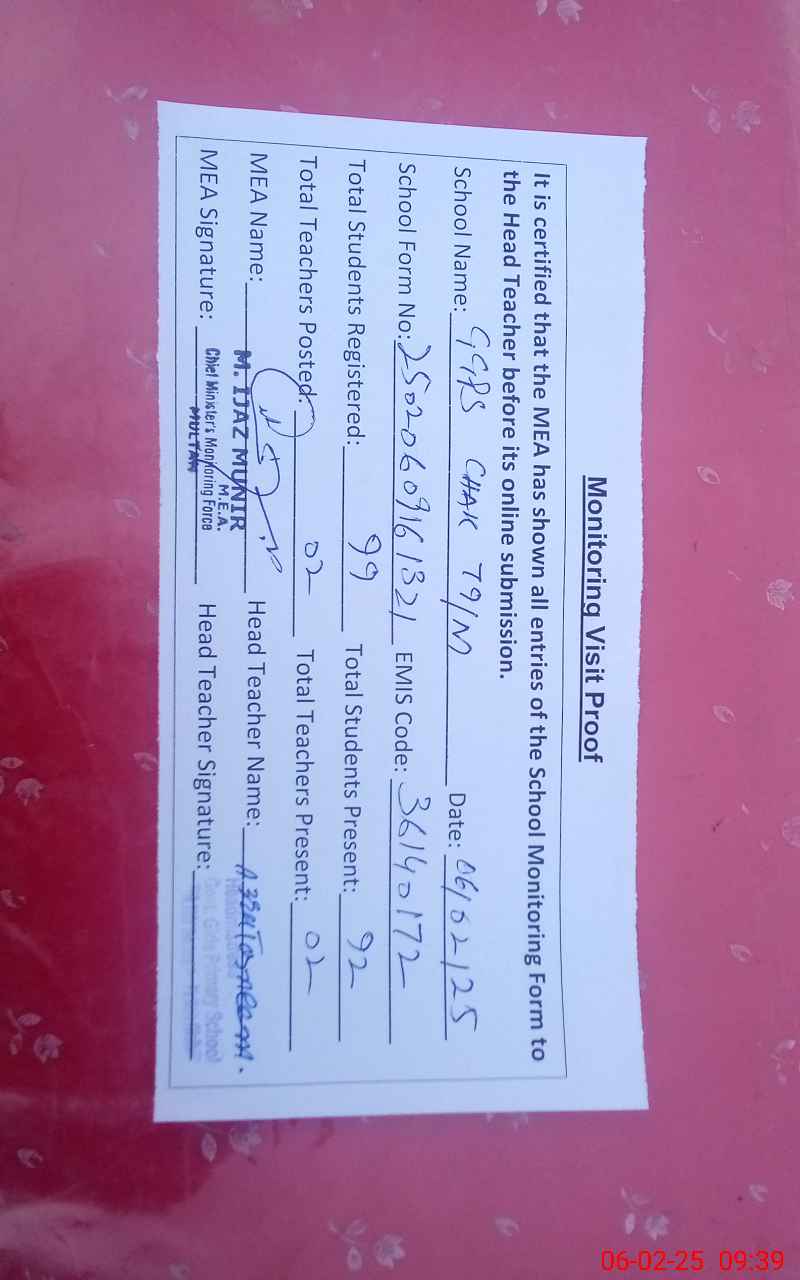 Monitoring Visit Proof
It is certified that the MEA has shown all entries of the School Monitoring Form to
the Head Teacher before its online submission.
School Name: GGPS CHAK 79/M Date: 06/02/25
School Form No: 25020609161321 EMIS Code: 36140172
Total Students Registered: 99 Total Students Present: 92
Total Teachers Posted: 02 Total Teachers Present: 02
MEA Name: M. IJAZ MUNIR Head Teacher Name:
M.E.A.
MEA Signature: Chief Minister's Monitoring Force Head Teacher Signature: Govt. Girls Primary School
MULTAN
06-02-25 09:39